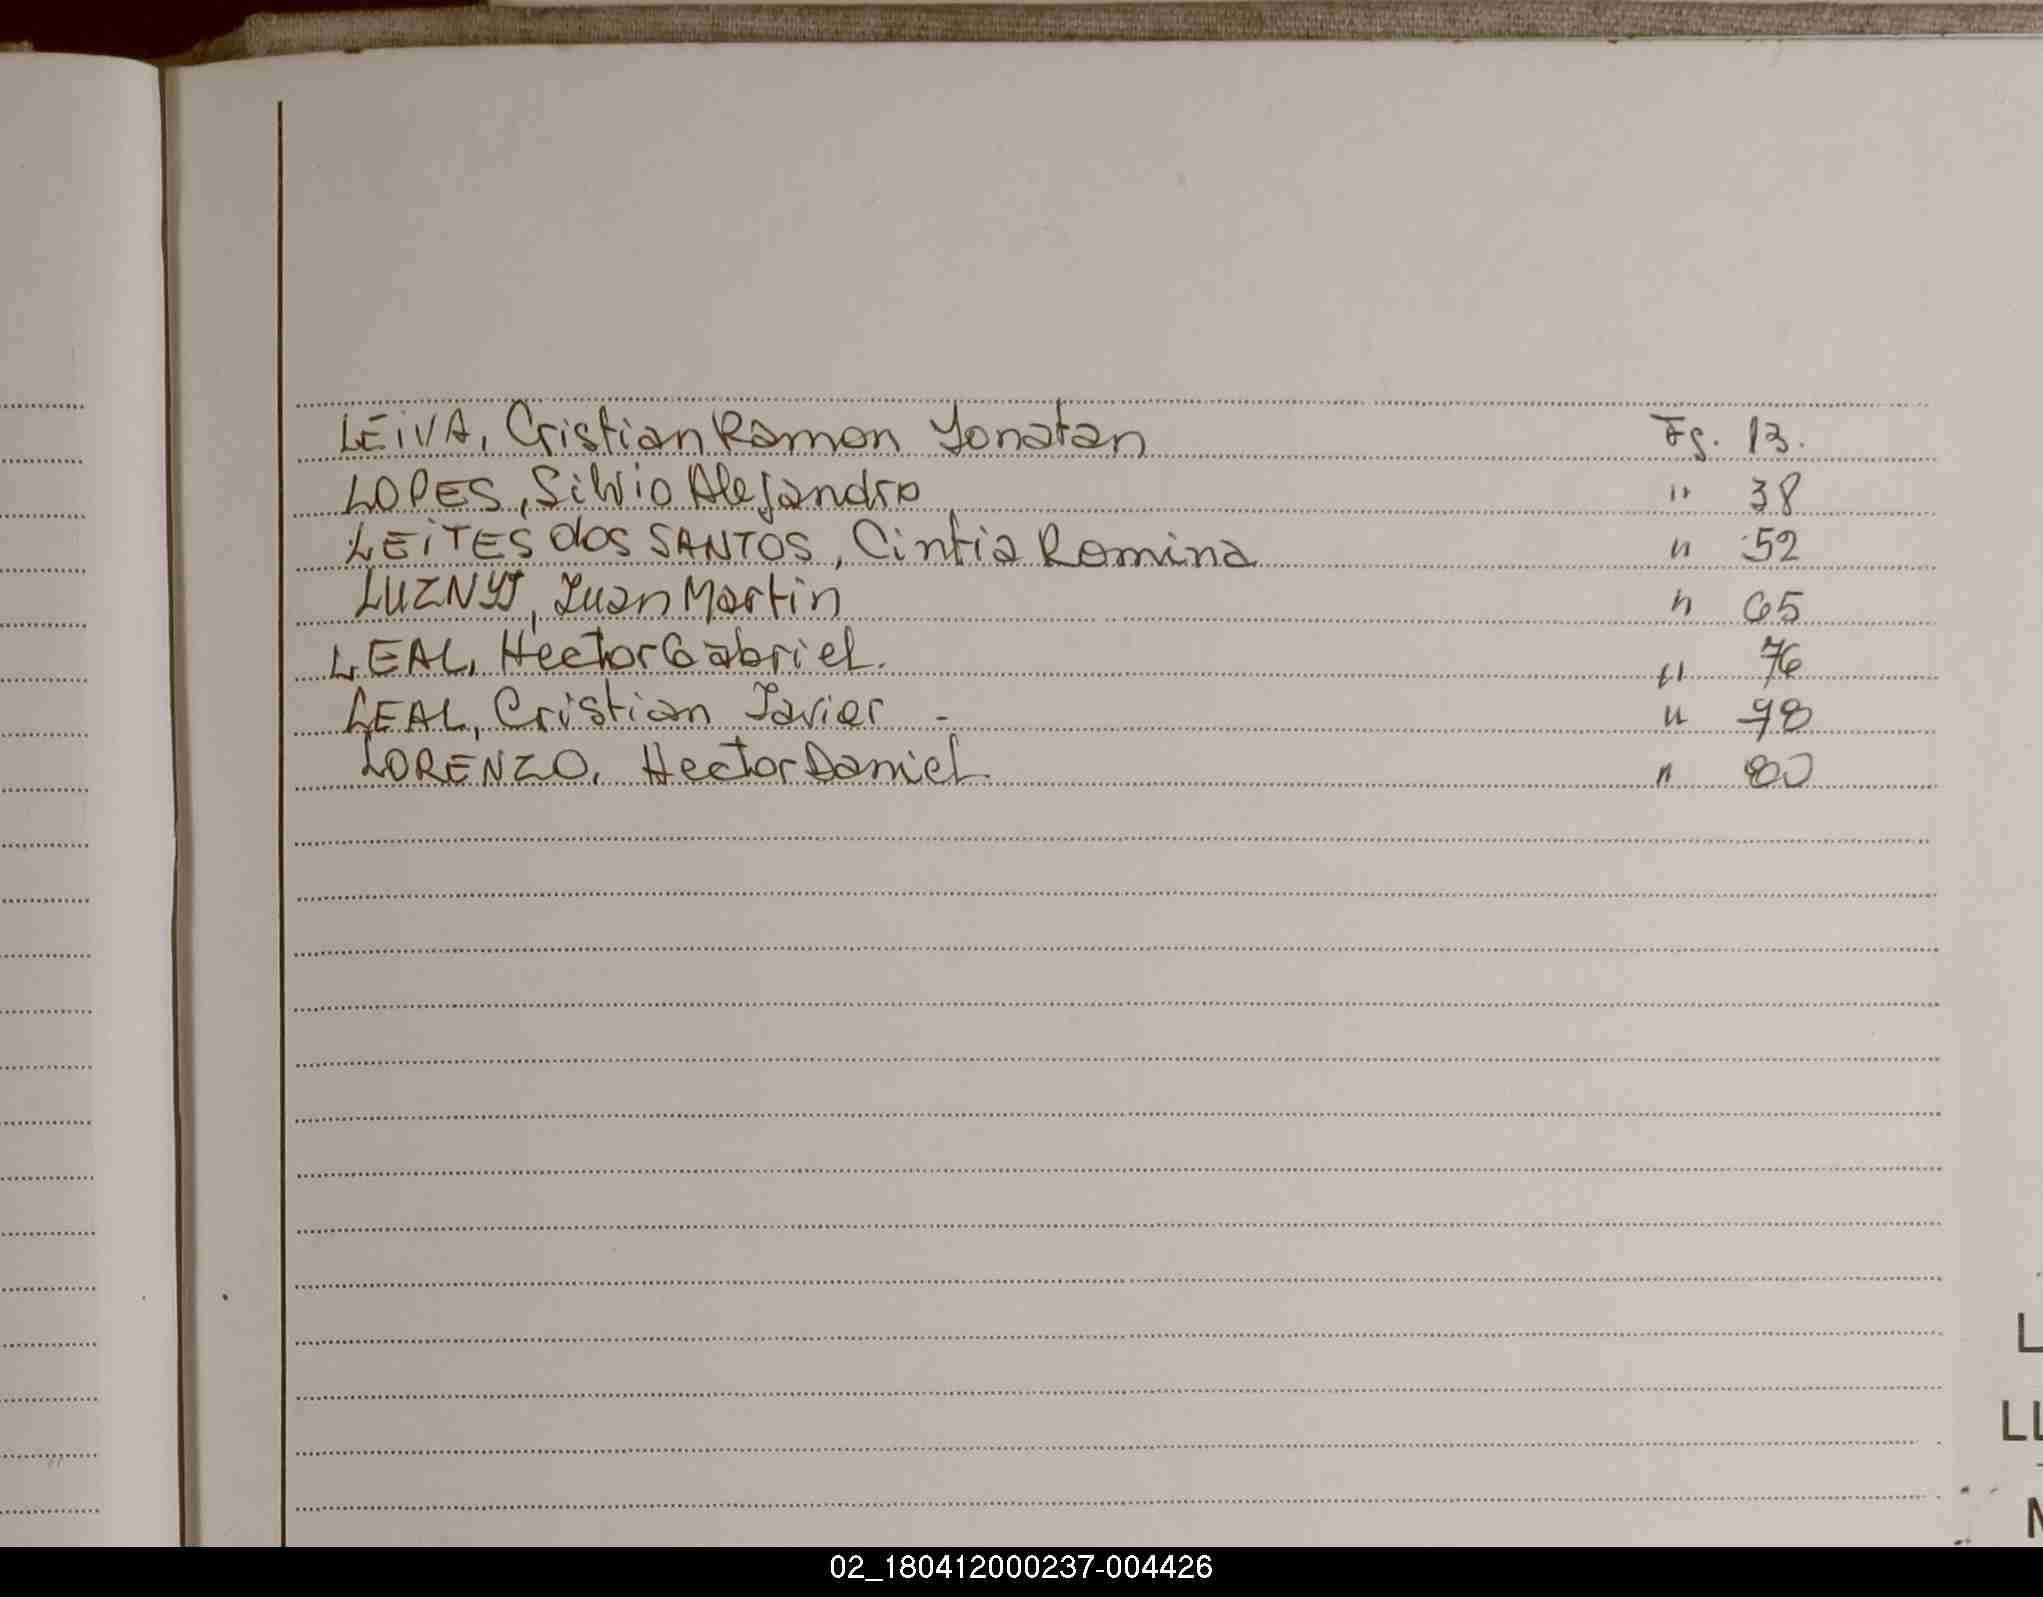 LEIVA, Cristian Ramon Jonatan Fs. 13.
LOPES, Silvio Alejandro " 38
LEITES dos SANTOS, Cintia Romina " 52
Juan Martin " 65
LEAL, Hector Gabriel. " 76
LEAL, Cristian Javier - " 78
LORENZO, Hector Daniel " 80
L
LL
02_180412000237-004426